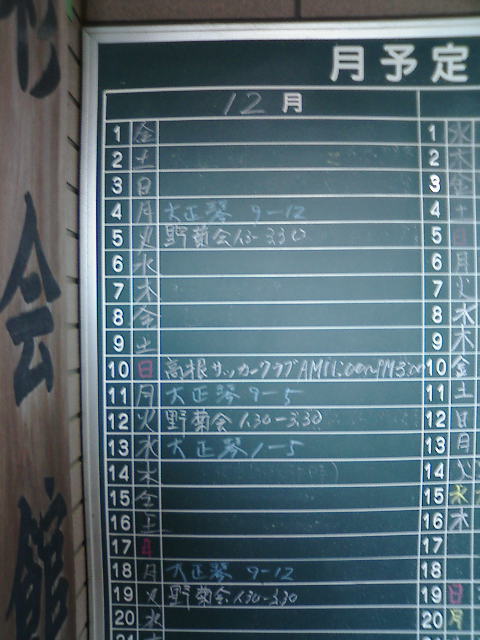 会
館
月予定
12月
1 金
2 土
3 日
4 月 大正琴 9-12
5 火 野菊会 1.30-3.30
6 水
7 木
8 金
9 土
10 日 高根サッカークラブAM11:00~PM3:00
11 月 大正琴 9-5
12 火 野菊会 1.30-3.30
13 水 大正琴 1-5
14 木
15 金
16 土
17 日
18 月 大正琴 9-12
19 火 野菊会 1.30-3.30
20 水
21
1 水
2 木
3 金
4 土
5 日
6 月
7 火
8 水
9 木
10 金
11 土
12 日
13 月
14 火
15 水
16 木
17
18
19 日
20 月